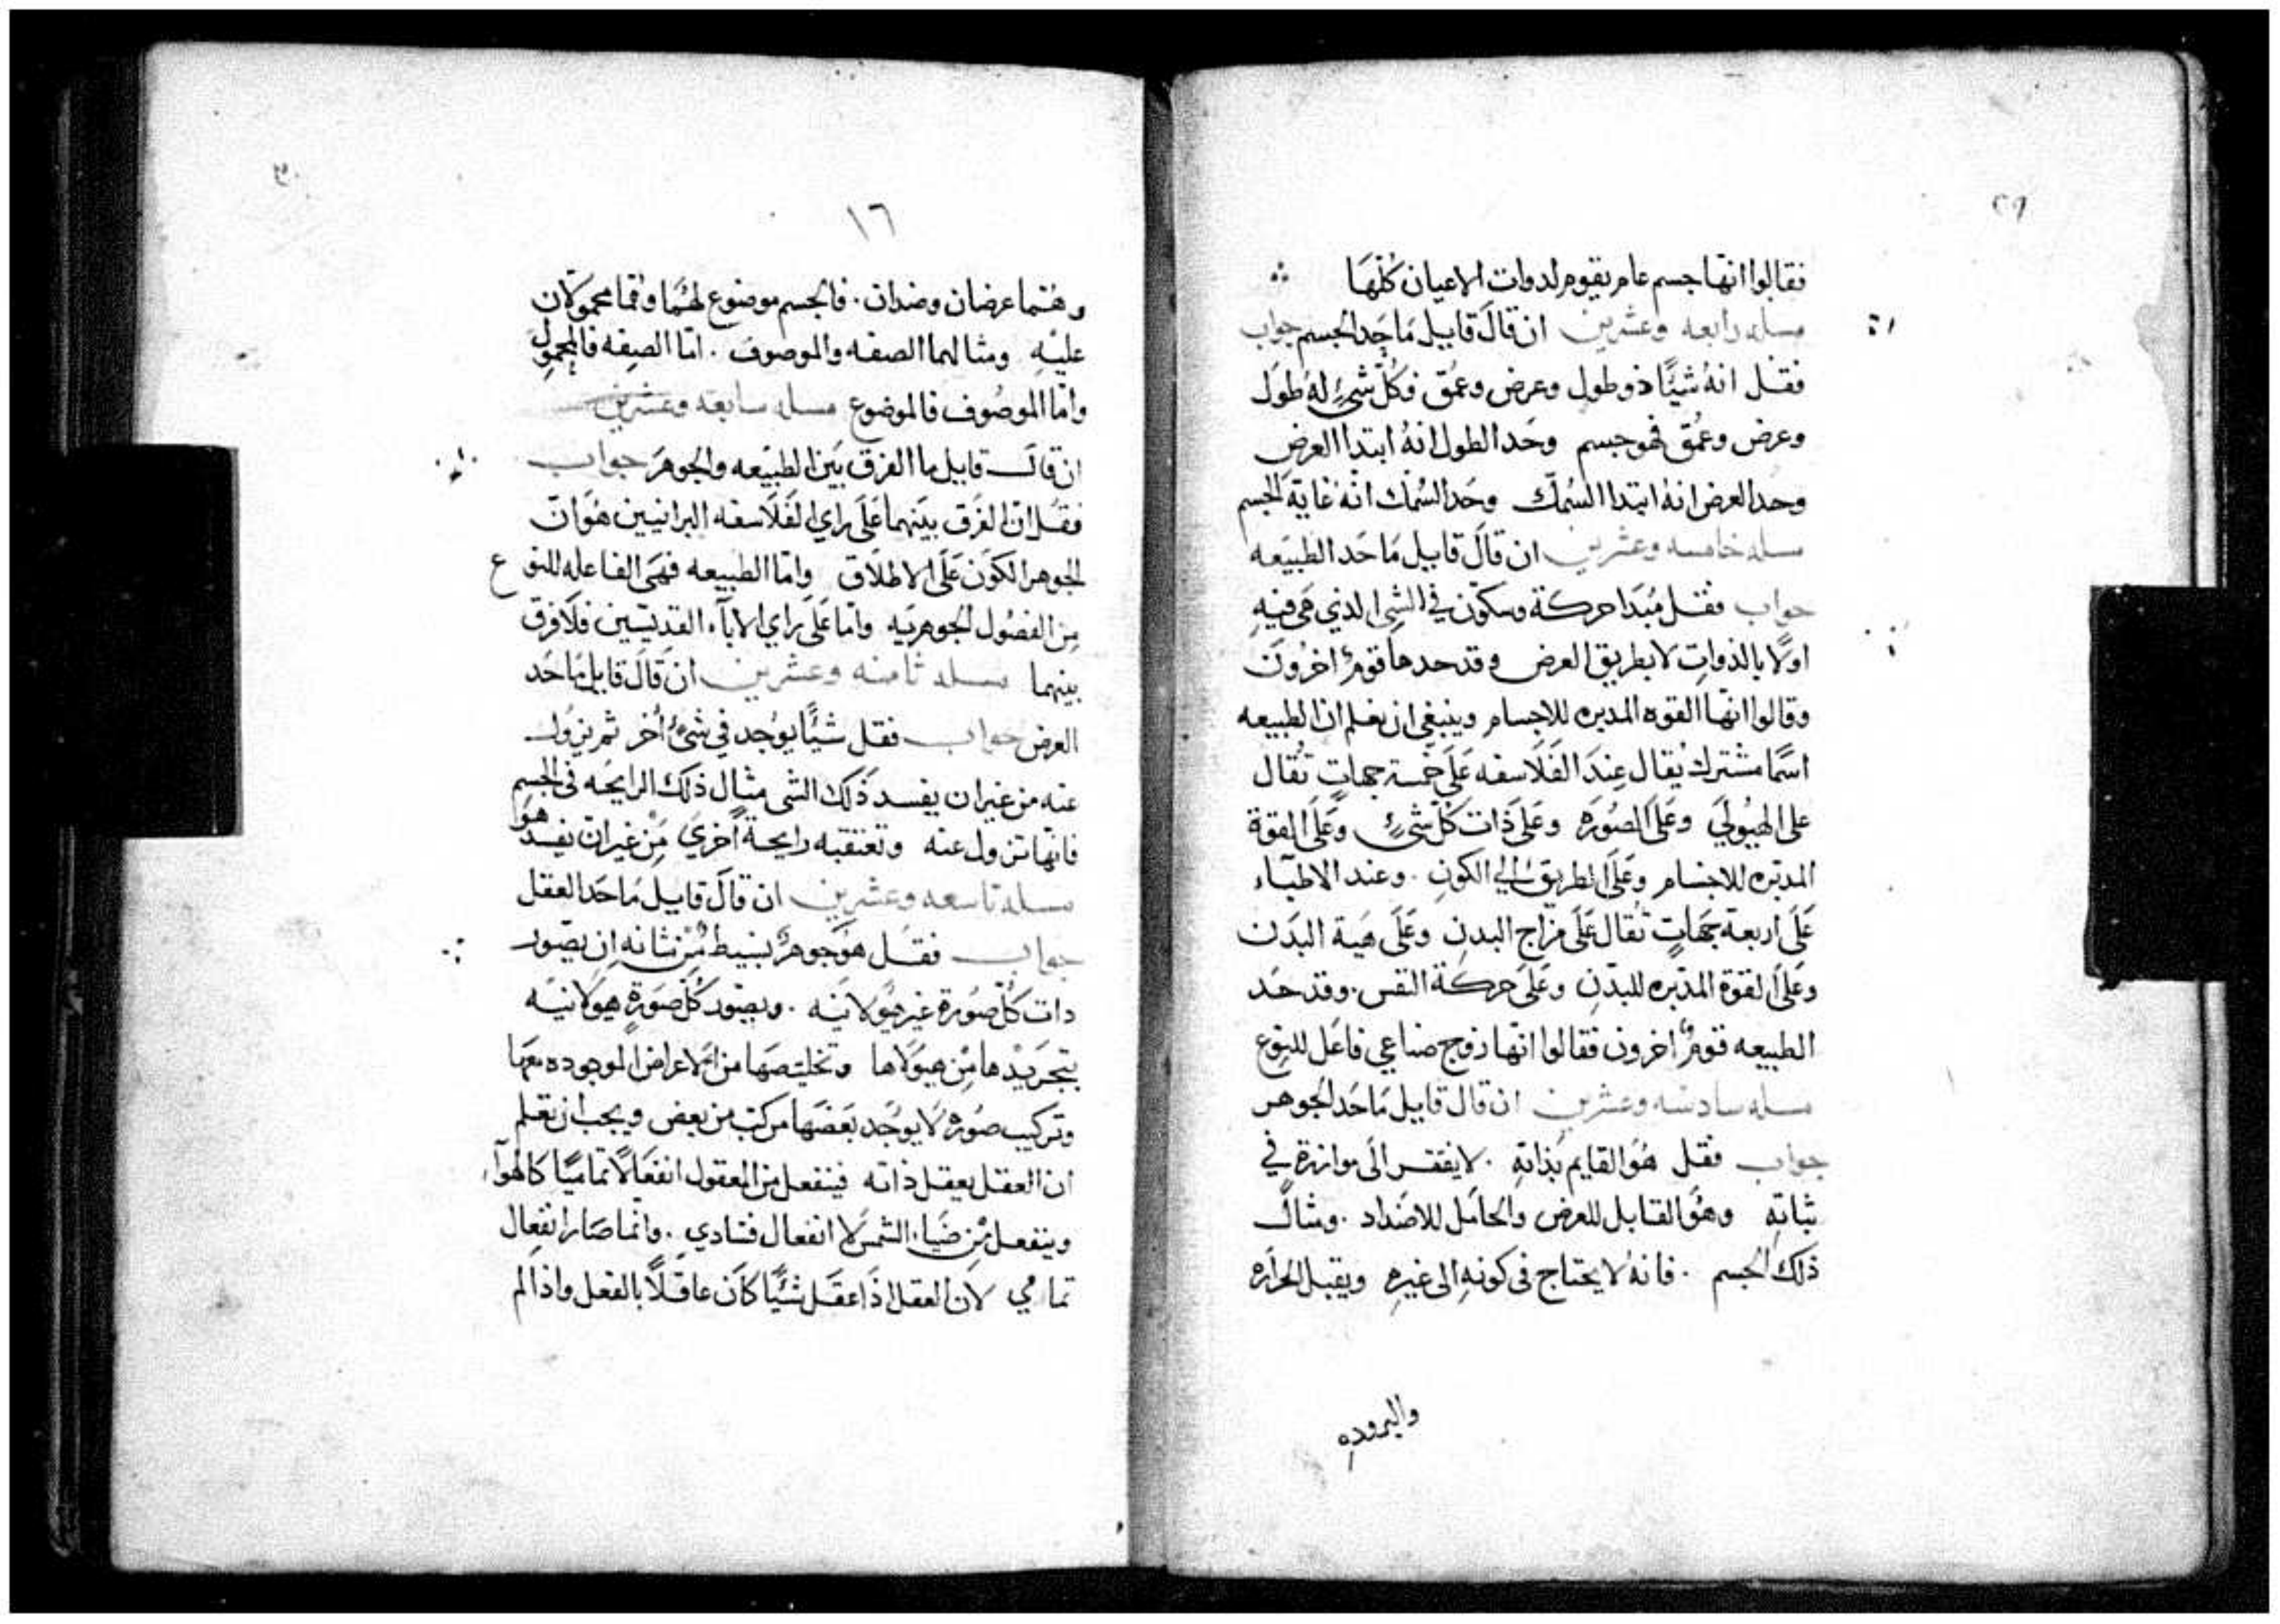 ٢٩
فقالوا انها جسم عام يقوم لدوات الاعيان كلها
مسله رابعه وعشرين ان قال قايل ما حد الجسم جواب
فقل انهُ شيًا ذو طول وعرض وعمق وكل شيء له طول
وعرض وعمق فهو جسم وحد الطول انهُ ابتدا العرض
وحد العرض انهُ ابتدا السمك وحد السمك انهُ غاية الجسم
مسله خامسه وعشرين ان قال قايل ما حد الطبيعه
جواب فقل مبدا حركة وسكون في الشي الذي هي فيهِ
اولًا بالذوات لا بطريق العرض وقد حدها قومٌ اخرون
وقالوا انها القوه المدبره للاجسام وينبغي ان يعلم ان الطبيعه
اسمًا مشترك يُقال عند الفلاسفه على خمسة جهاتٍ تُقال
على الهيولي وعلى الصوره وعلى ذات كل شيءٍ وعلى القوة
المدبره للاجسام وعلى الطريق الي الكون . وعند الاطباء
على اربعة جهاتٍ تُقال على مزاج البدن وعلى هية البدن
وعلى القوة المدبره للبدن وعلى حركة النفس . وقد حد
الطبيعه قومٌ اخرون فقالوا انها زوج صناعي فاعل للنوع
مسله سادسه وعشرين ان قال قايل ما حد الجوهر
جواب فقل هو القايم بذاتهِ . لا يفقر الى موازرة في
ثباتهِ وهو القابل للعرض والحامل للاضداد . ومثال
ذلك الجسم . فانهُ لا يحتاج في كونهِ الى غيرهِ ويقبل الحراره
والبروده
٣٠
١٦
وهُما عرضان وضدان . فالجسم موضوع لهُما وهُما محمولان
عليهِ ومثالهما الصفه والموصوف . امّا الصفه فالمحمول
وامّا الموصوف فالموضوع مسله سابعه وعشرين
ان قال قايل ما الفرق بين الطبيعه والجوهر جواب
فقل ان الفرق بينهما على راي الفلاسفه البرانيين هو ان
الجوهر الكون على الاطلاق وامّا الطبيعه فهي الفاعله للنوع
من الفصول الجوهريه وامّا على راي الابآء القديسين فلا فرق
بينهما مسله ثامنه وعشرين ان قال قايل ما حد
العرض جواب فقل شيًا يوجد في شيءٍ اخر ثم يزول
عنه من غير ان يفسد ذلك الشي مثال ذلك الرايحه في الجسم
فانها تزول عنه وتعتقبه رايحة اخري من غير ان يفسد هو
مسله تاسعه وعشرين ان قال قايل ما حد العقل
جواب فقل هو جوهرٌ بسيط من شانه ان يصور
ذات كل صورة غير هيولانيه . ويصور كل صورةٍ هيولانيه
بتجريدها من هيولاها وتخليصها من الاعراض الموجوده معها
وتركيب صوره لا يوجد بعضها مركب من بعض ويجب ان تعلم
ان العقل يعقل ذاته فينفعل من المعقول انفعالًا تماميًا كالهوآء
وينفعل من ضياء الشمس لا انفعال فسادي . وانما صار انفعال
تمامي لان العقل اذا عقل شيًا كان عاقلًا بالفعل واذا لم